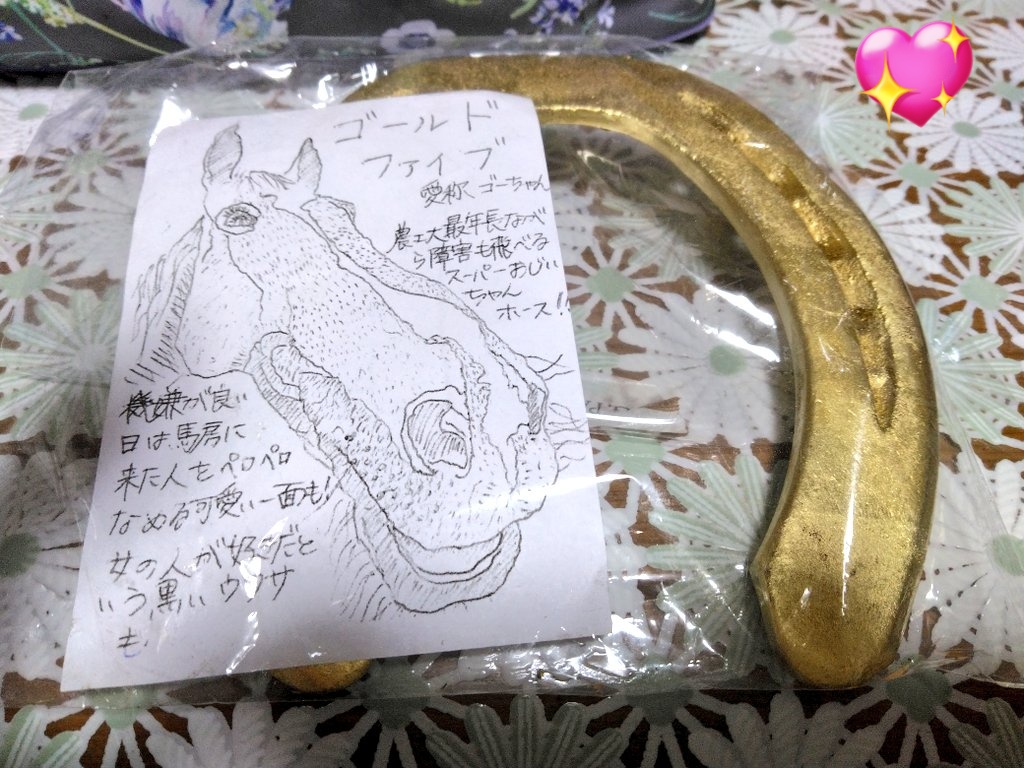 ゴールド
ファイブ
愛称 ゴーちゃん
農工大最年長なが
ら障害も飛べる
スーパーおじい
ちゃん
ホース!!
機嫌が良い
日は馬房に
来た人をペロペロ
なめる可愛い一面も!
女の人が好きだと
いう黒いウワサ
も